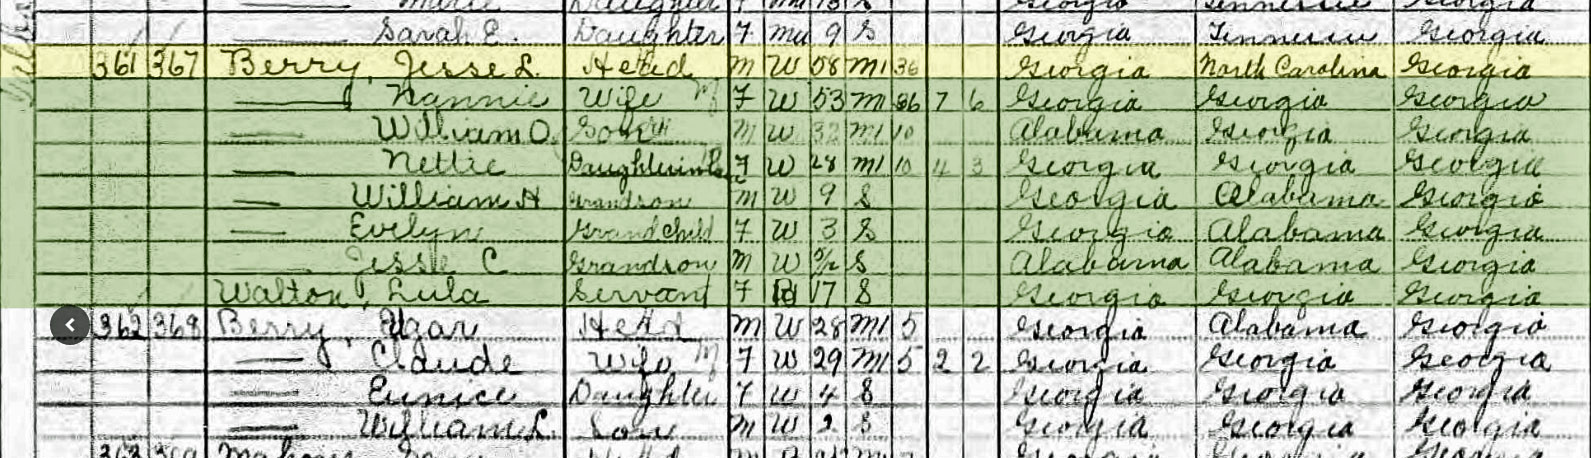 Marie Daughter F Mu 13 S Georgia Tennessee Georgia
Sarah E. Daughter F Mu 9 S Georgia Tennessee Georgia
361 367 Berry, Jesse L. Head M W 58 M1 36 Georgia North Carolina Georgia
Nannie Wife F W 53 M1 36 7 6 Georgia Georgia Georgia
William O. Son M W 32 M1 10 Alabama Georgia Georgia
Nettie Daughterinla F W 28 M1 10 4 3 Georgia Georgia Georgia
William H Grandson M W 9 S Georgia Alabama Georgia
Evelyn Grandchild F W 3 S Georgia Alabama Georgia
Jesse C Grandson M W S Alabama Alabama Georgia
Walton, Lula Servant F B 17 S Georgia Georgia Georgia
362 368 Berry, Head M W 28 M1 5 Georgia Alabama Georgia
Claude Wife F W 29 M1 5 2 2 Georgia Georgia Georgia
Eunice Daughter F W 4 S Georgia Georgia Georgia
William L. Son M W 2 S Georgia Georgia Georgia
363 369